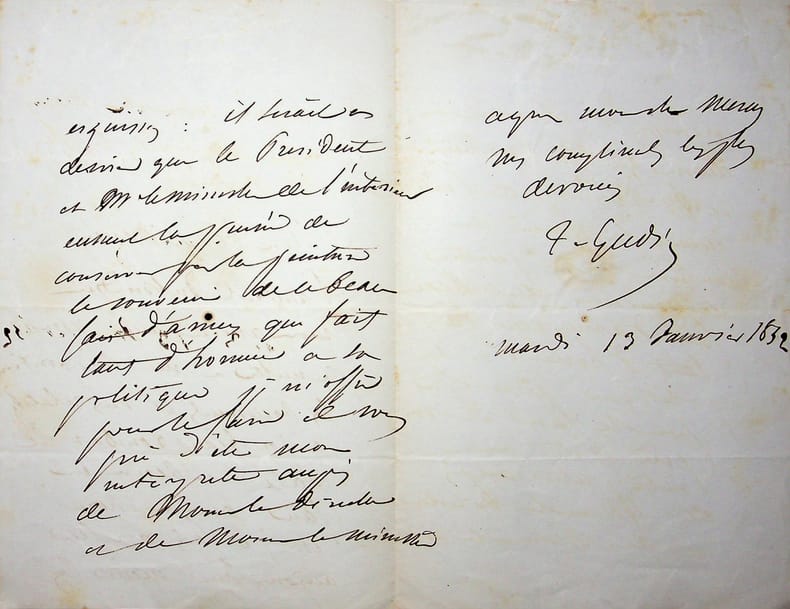 esquisses : il serait à
desirer que le President
et Mr le ministre de l'interieur
eussent la pensée de
conserver par la peinture
le souvenir de le beau
fait d'armes qui fait
tant d'honneur a sa
politique je m'offre
pour le faire et vous
prie d'être mon
interprete auprès
de Monsieur le Directeur
et de Monsieur le ministre
agréez Monsieur
mes compliments les plus
devoués
T. Gudin
mardi 13 Janvier 1852